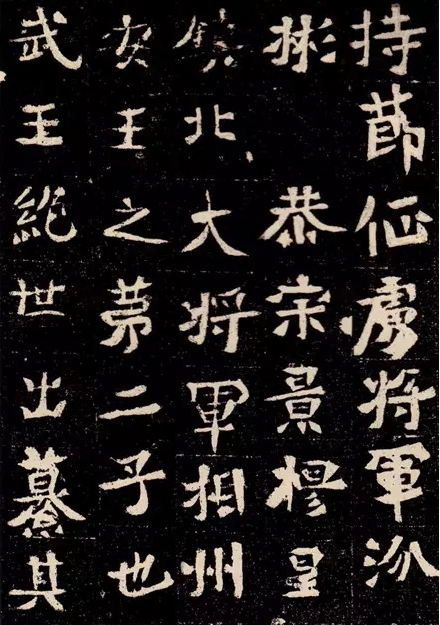 持節征虜將軍汾
彬 恭宗景穆皇
鎮北大將軍相州
安王之第二子也
武王絕世出纂其